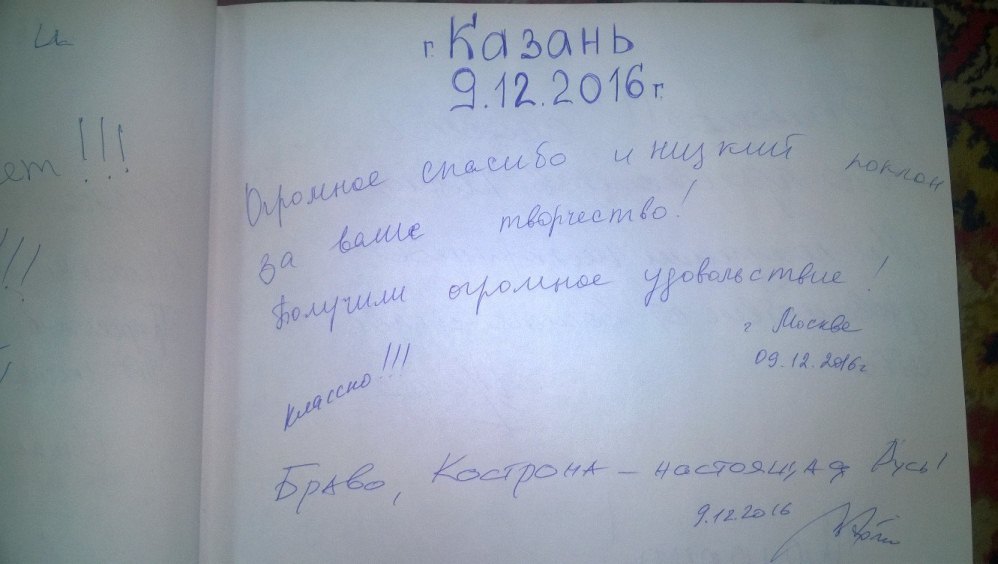 г. Казань
9.12.2016 г.
Огромное спасибо и низкий поклон
за ваше творчество!
Получили огромное удовольствие!
г Москва
09.12.2016г
Классно!!!
Браво, Кострома – настоящая Русь!
9.12.2016